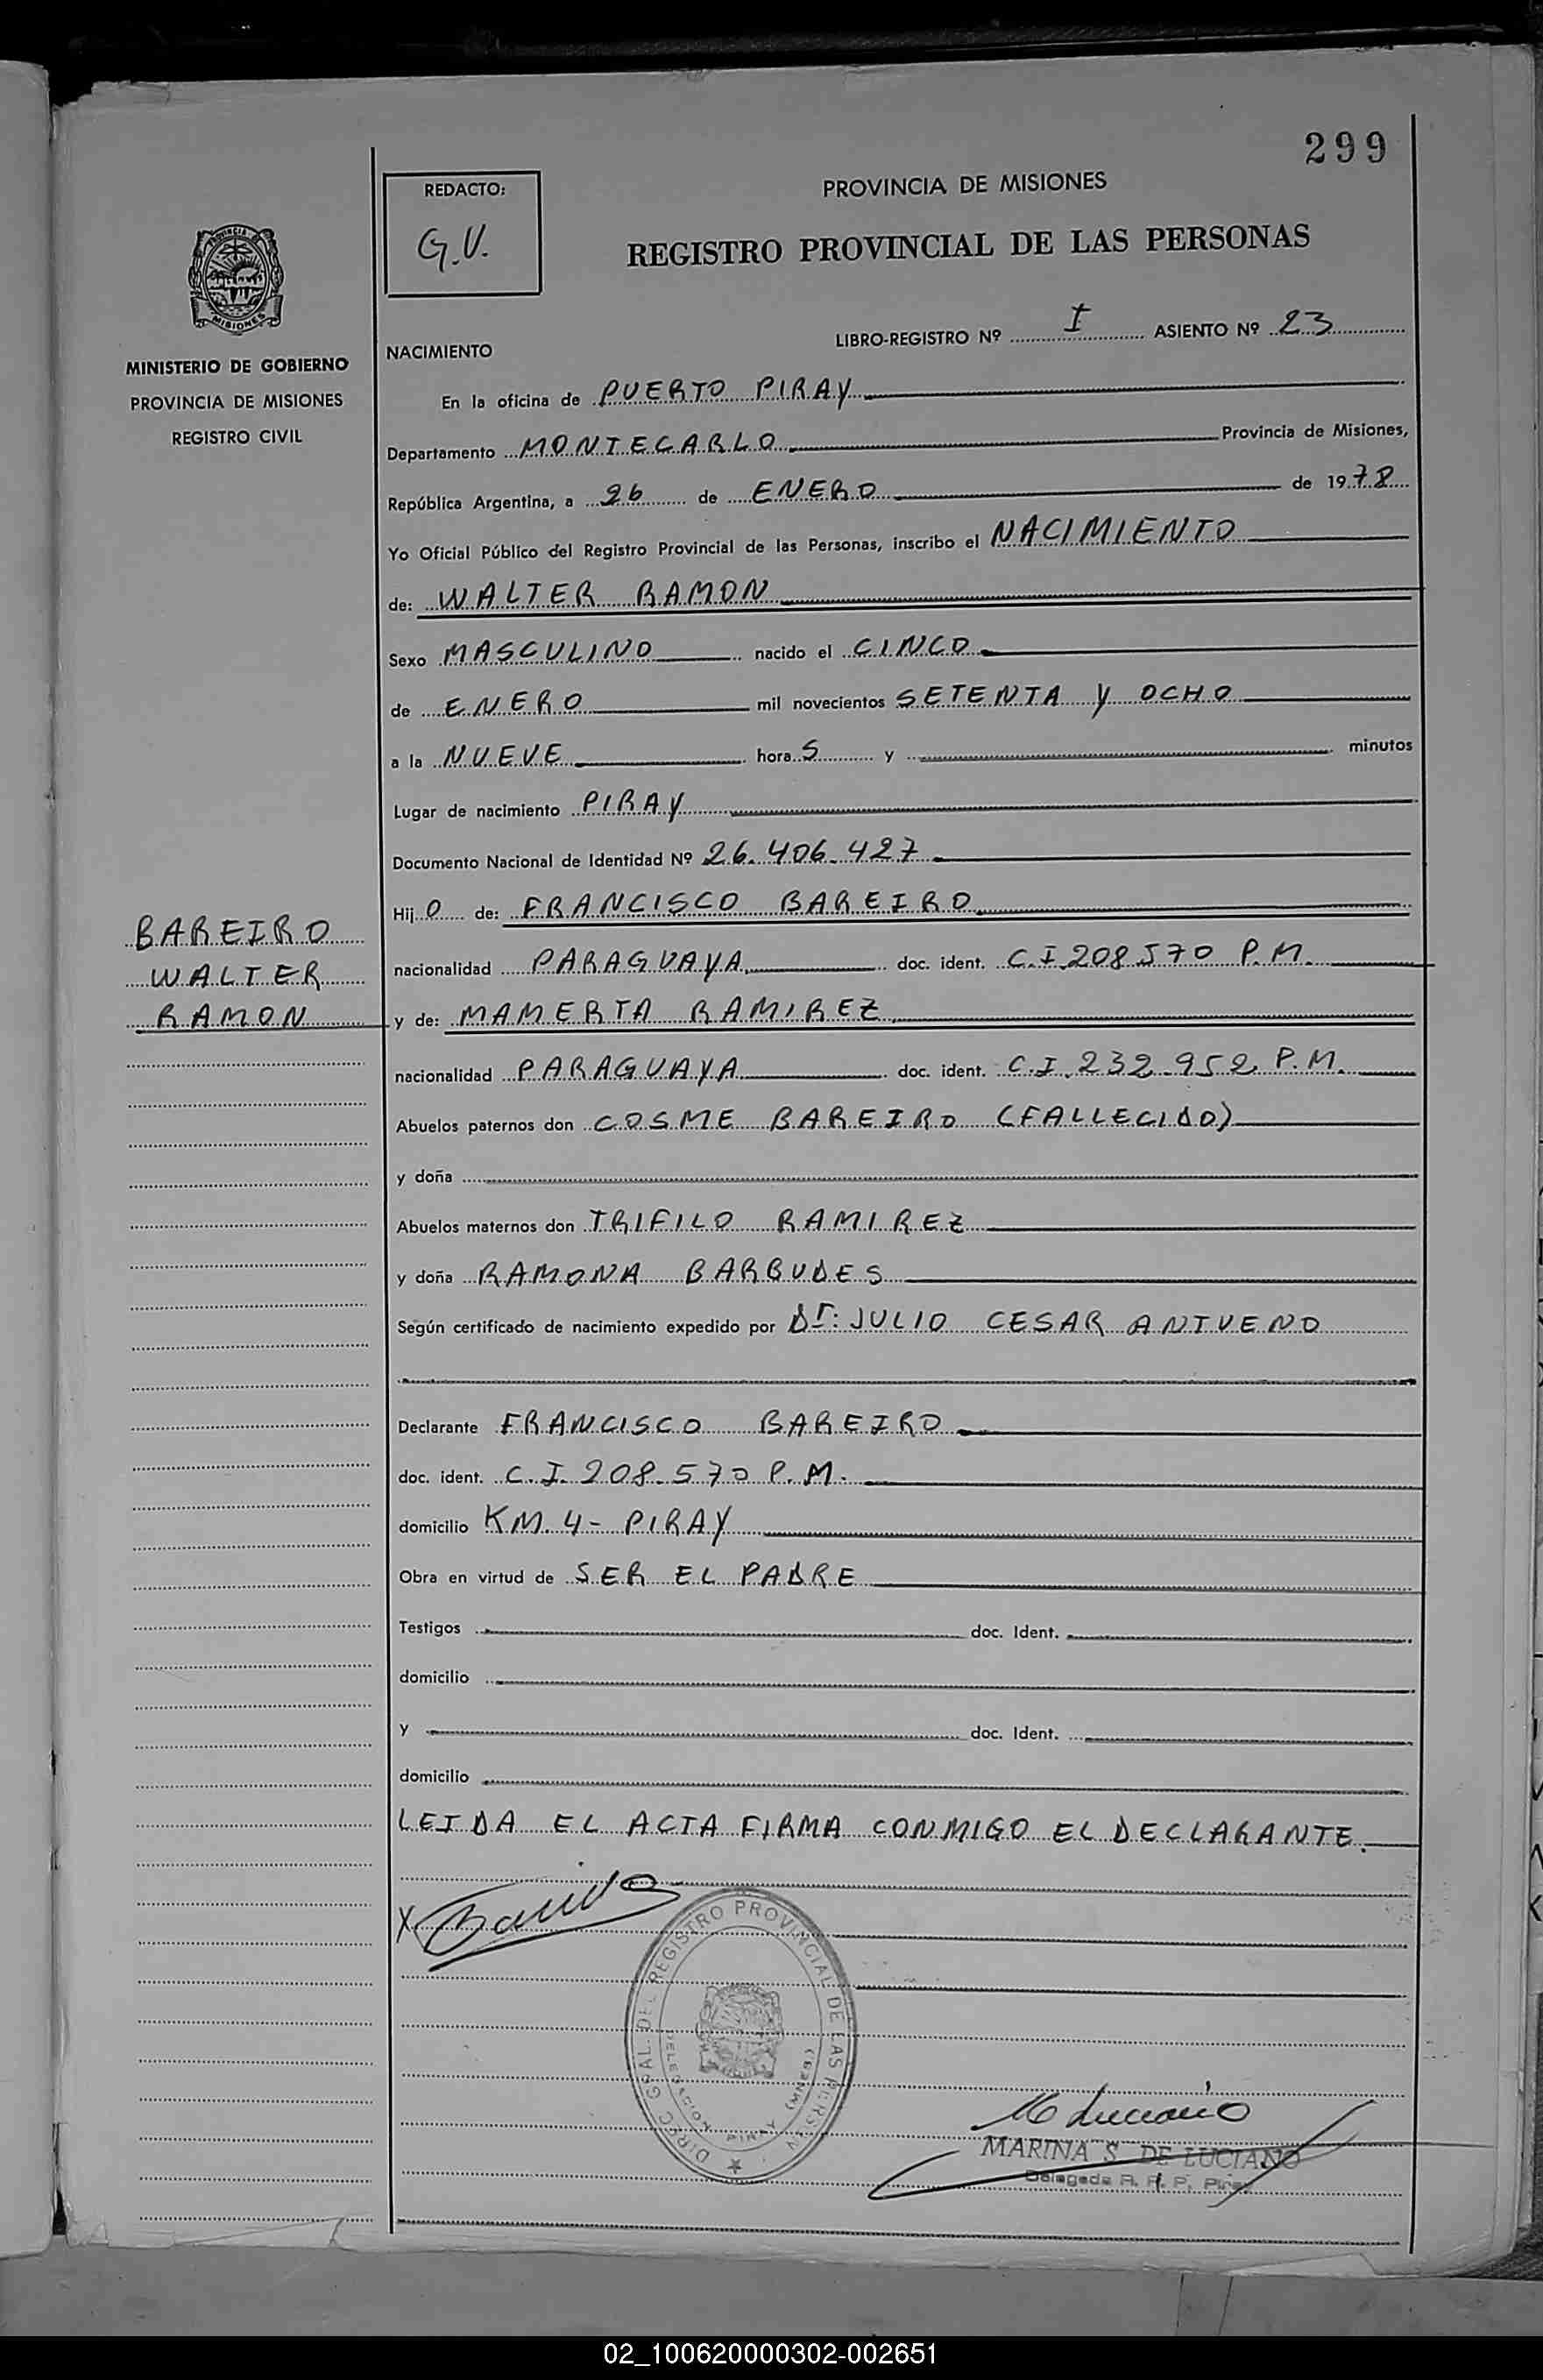 299
REDACTO:
G.V.
PROVINCIA DE MISIONES
REGISTRO PROVINCIAL DE LAS PERSONAS
PROVINCIA DE
MISIONES
MINISTERIO DE GOBIERNO
PROVINCIA DE MISIONES
REGISTRO CIVIL
LIBRO-REGISTRO Nº I ASIENTO Nº 23
NACIMIENTO
En la oficina de PUERTO PIRAY
Departamento MONTECARLO Provincia de Misiones,
República Argentina, a 26 de ENERO de 1978
Yo Oficial Público del Registro Provincial de las Personas, inscribo el NACIMIENTO
de: WALTER RAMON
Sexo MASCULINO nacido el CINCO
de ENERO mil novecientos SETENTA Y OCHO
a la NUEVE hora S y minutos
Lugar de nacimiento PIRAY
Documento Nacional de Identidad Nº 26.406.427
Hij O de: FRANCISCO BAREIRO
BAREIRO
WALTER
RAMON
nacionalidad PARAGUAYA doc. ident. C.I. 208.570 P.M.
y de: MAMERTA RAMIREZ
nacionalidad PARAGUAYA doc. ident. C.I. 232.952 P.M.
Abuelos paternos don COSME BAREIRO (FALLECIDO)
y doña
Abuelos maternos don TRIFILO RAMIREZ
y doña RAMONA BARBUDES
Según certificado de nacimiento expedido por Dr: JULIO CESAR ANTUENO
Declarante FRANCISCO BAREIRO
doc. ident. C.I. 208.570 P.M.
domicilio KM. 4 - PIRAY
Obra en virtud de SER EL PADRE
Testigos doc. Ident.
domicilio
y doc. Ident.
domicilio
LEIDA EL ACTA FIRMA CONMIGO EL DECLARANTE.
X Bareiro
DIREC. GRAL. DEL REGISTRO PROVINCIAL DE LAS PERSON
DELEGACION PIRAY (MNES)
M Luciano
MARINA S. DE LUCIANO
Delegada R. P. P. Piray
02_100620000302-002651